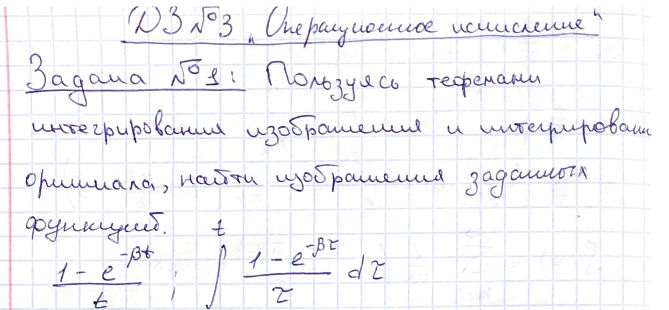 ДЗ №3 „Операционное исчисление“
Задача №1: Пользуясь теоремами
интегрирования изображения и интегрирован
оригинала, найти изображения заданных
функций.
(1 - e^{-βt})/t ; ∫^t (1 - e^{-βτ})/τ dτ